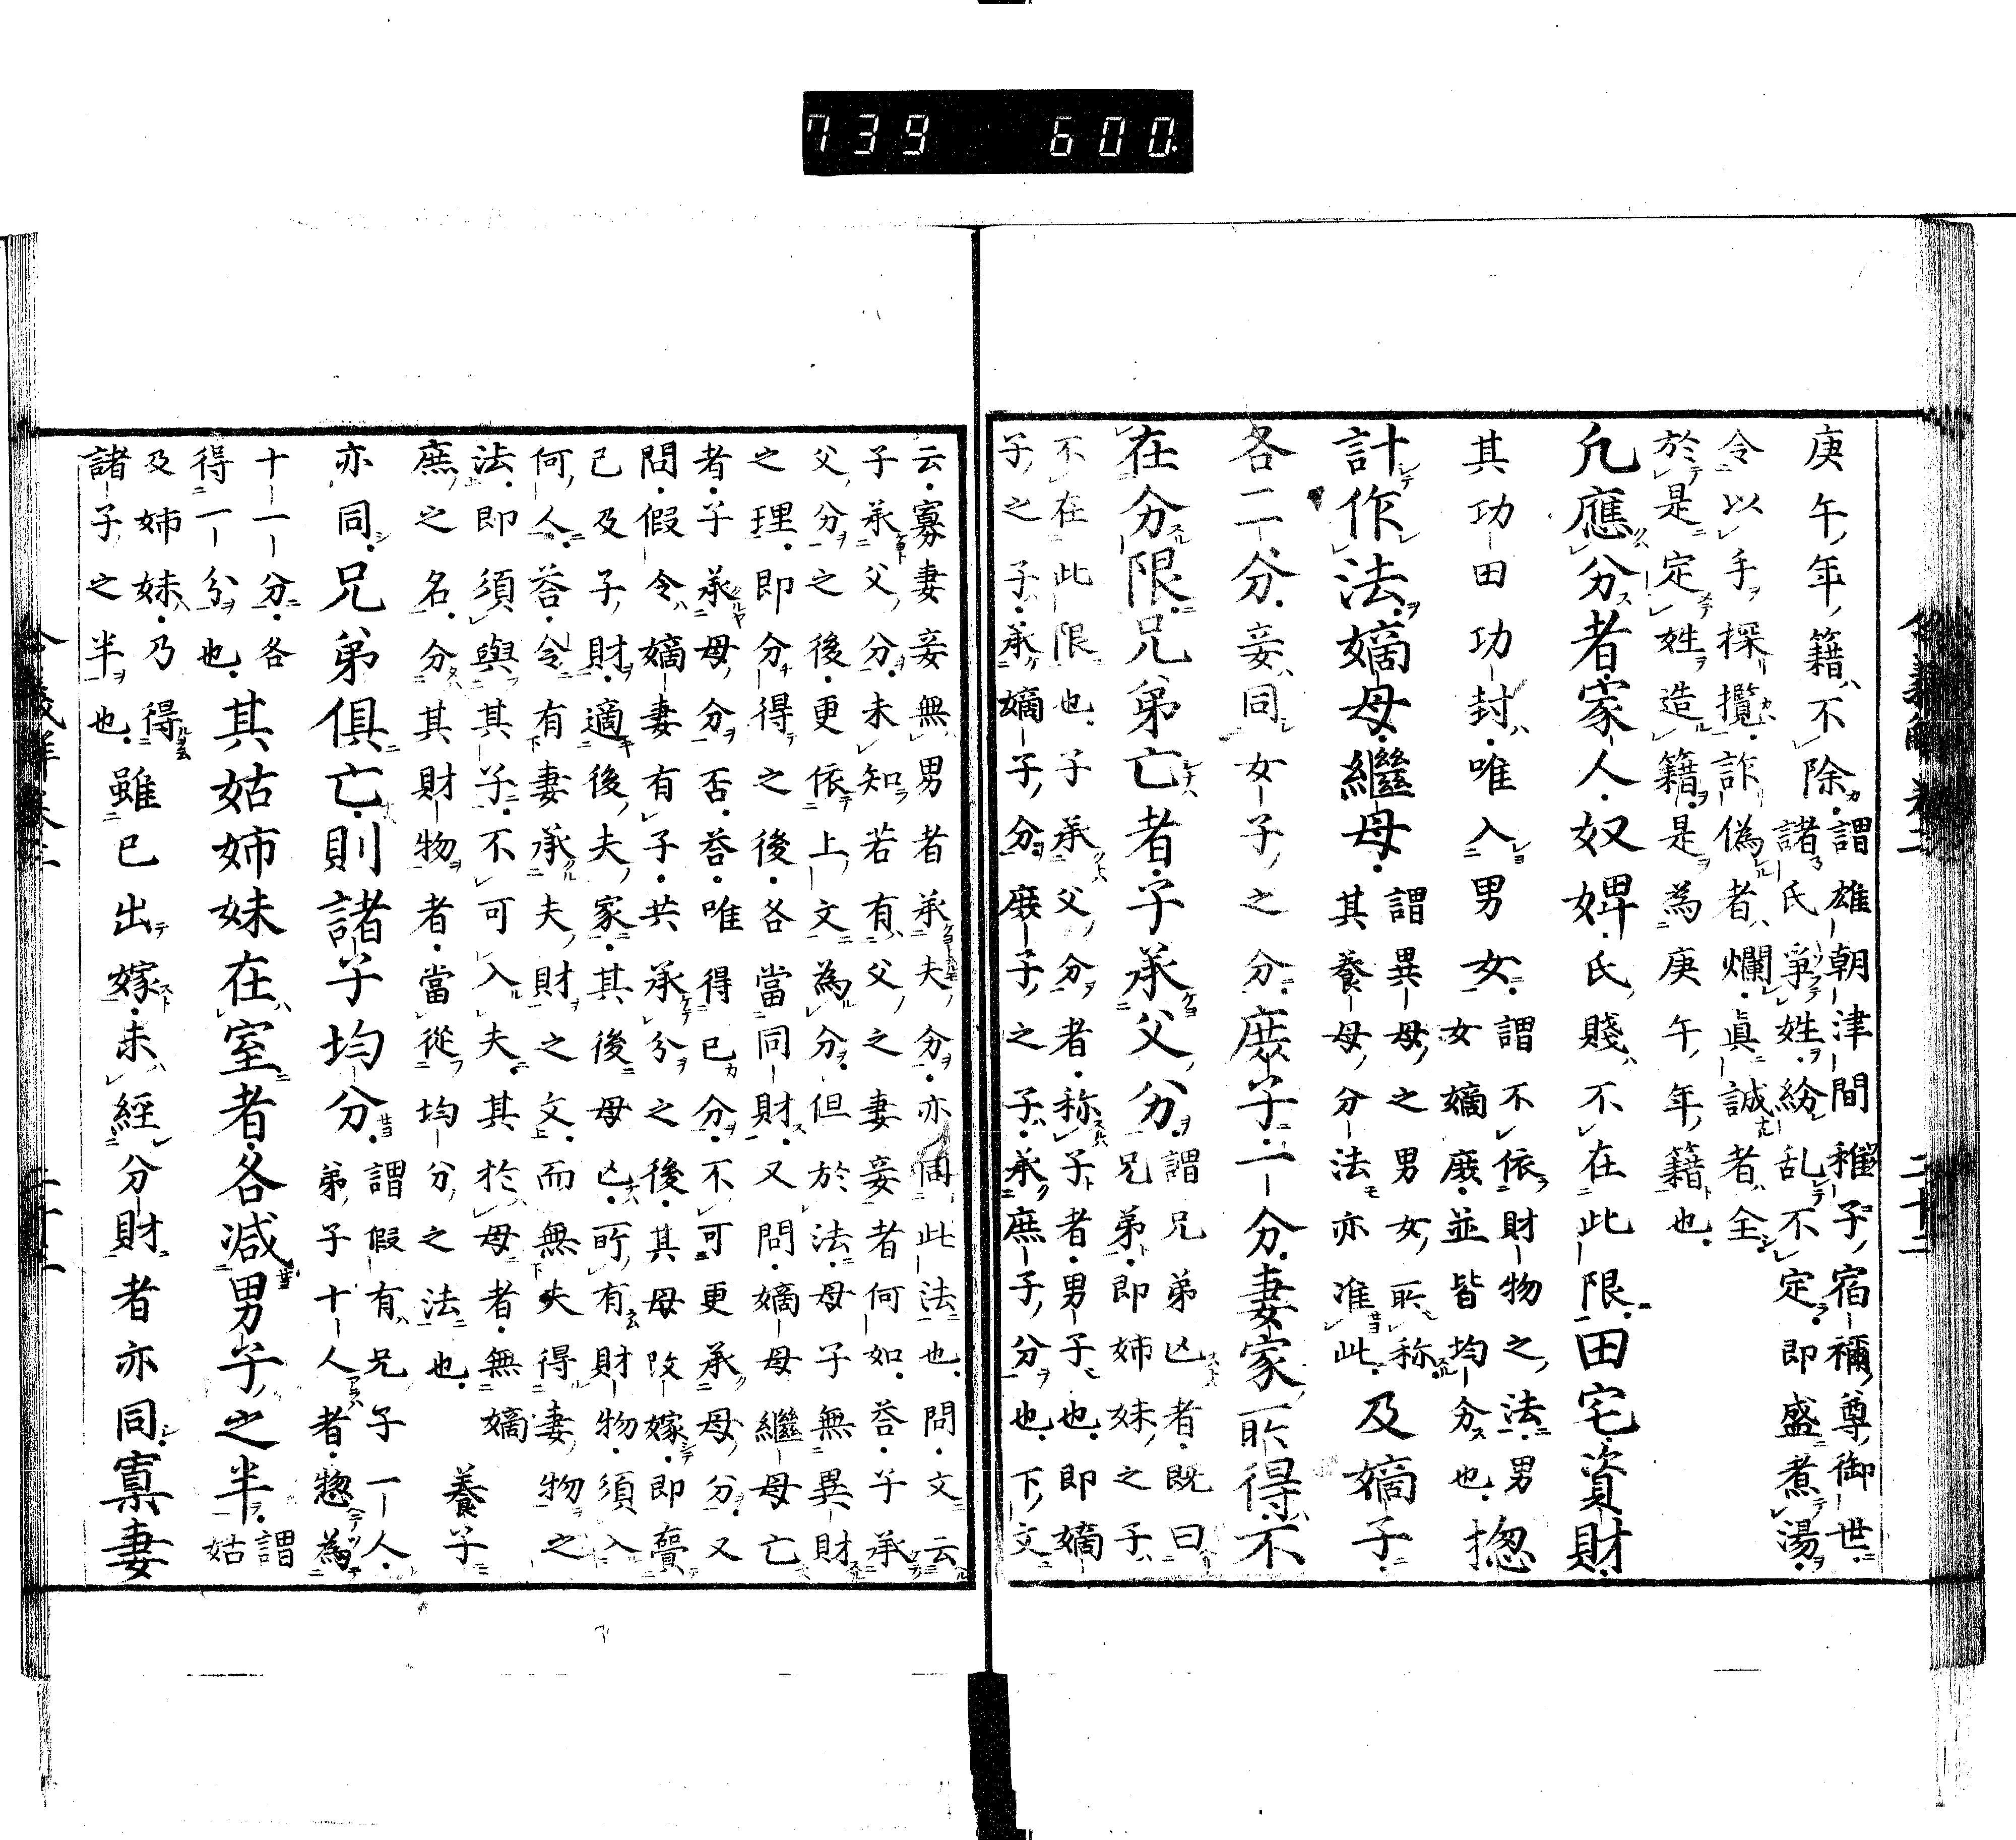 令義解 卷二 二十二
庚午年籍不除謂雄朝津間稚子宿禰尊御世
諸氏爭姓紛乱不定即盛煮湯
令以手探攬詐偽者爛眞誠者全
於是定姓造籍是為庚午年籍也
凡應分者家人奴婢氏賤不在此限田宅資財
其功田功封唯入男女謂不依財物之法男
女嫡庶並皆均分也惣
計作法嫡母繼母謂異母之男女所称
其養母分法亦准此及嫡子
各二分妾同女子之分庶子一分妻家所得不
在分限兄弟亡者子承父分謂兄弟亡者既曰
兄弟即姉妹之子
不在此限也子承父分者称子者男子也即嫡
子之子承嫡子分庶子之子承庶子分也下文
云寡妻妾無男者承夫分亦同此法也問文云
子承父分未知若有父之妻妾者何如荅子承
父分之後更依上文為分但於法母子無異財
之理即分得之後各當同財又問嫡母繼母亡
者子承母分否荅唯得己分不可更承母分又
問假令嫡妻有子共承分之後其母改嫁即賷
己及子財適後夫家其後母亡所有財物須入
何人荅令有妻承夫財之文而無夫得妻物之
法即須與其子不可入夫其於母者無嫡
庶之名分其財物者當從均分之法也養子
亦同兄弟俱亡則諸子均分謂假有兄子一人
弟子十人者惣為
十一分各
得一分也其姑姉妹在室者各減男子之半謂
姑
及姉妹乃得
諸子之半也雖已出嫁未經分財者亦同寡妻
739 600.